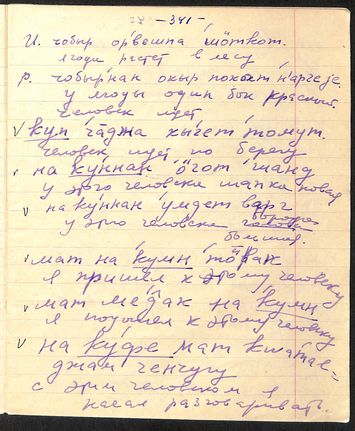 - 341 -
И. чобыр орвешпа шöткот.
ягоды растет в лесу
р. чобырнан окыр
у ягоды один бок красный.
человек идет
V куп чаджа кыгет томут.
человек идет по берегу
на куннан öгот шанд
у этого человека шапка новая
V на куннан умдет варг
у этого человека борода
большая.
V мат на кумн тöвак
я пришел к этому человеку
V мат медак на кумн
я подошел к этому человеку
V на куфе мат
джам ченчугу
с этим человеком я
начал разговаривать.